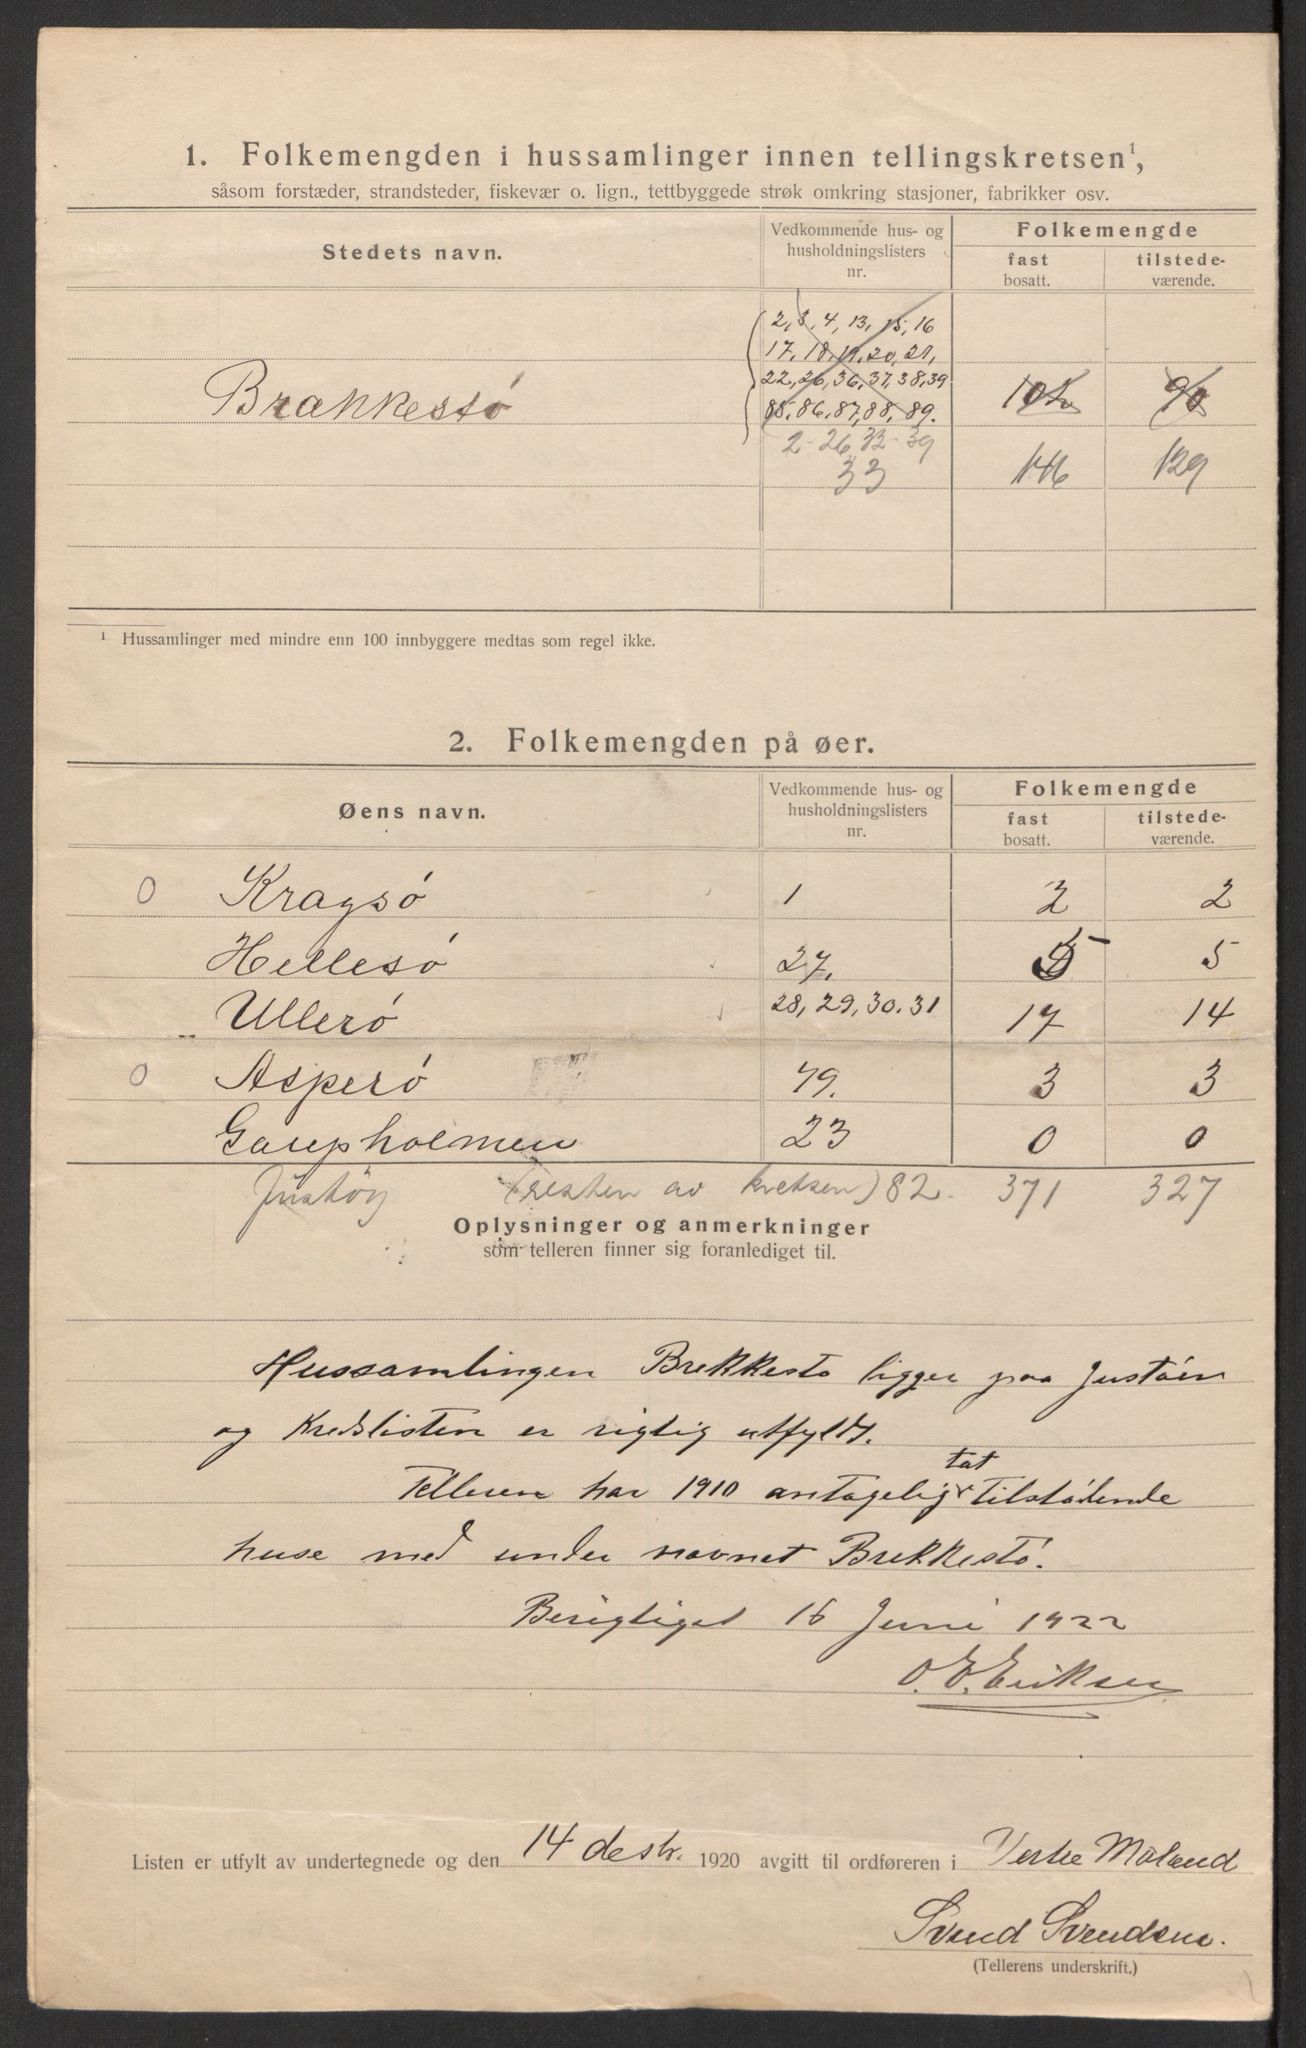 1. Folkemengden i hussamlinger innen tellingskretsen¹,
såsom forstæder, strandsteder, fiskevær o. lign., tettbyggede strøk omkring stasjoner, fabrikker osv.
Stedets navn.
Vedkommende hus- og husholdningslisters nr.
Folkemengde
fast bosatt.
tilstede-værende.
2, 3, 4, 13, 15, 16
17, 18, 19, 20, 21,
22, 26, 36, 37, 38, 39
85, 86, 87, 88, 89.
Brækkestø 102 90
2-26 32-39
33 146 129
¹ Hussamlinger med mindre enn 100 innbyggere medtas som regel ikke.
2. Folkemengden på øer.
Øens navn.
Vedkommende hus- og husholdningslisters nr.
Folkemengde
fast bosatt.
tilstede-værende.
0 Kragsø 1 2 2
Hellesø 27. 5 5
Ullerø 28, 29, 30. 31 17 14
0 Asperø 79. 3 3
Gaupholmen 23 0 0
Justøy (resten av kretsen) 82. 371 327
Oplysninger og anmerkninger
som telleren finner sig foranlediget til.
Hussamlingen Brekkestø ligger paa Justøen
og Kredslisten er rigtig utfyldt.
Telleren har 1910 antagelig tat tilstødende
huse med under navnet Brekkestø.
Berigtiget 16 Juni 1922
O. E. Eriksen
Listen er utfylt av undertegnede og den 14 desbr. 1920 avgitt til ordføreren i Vestre Moland
Svend Svendsen.
(Tellerens underskrift.)